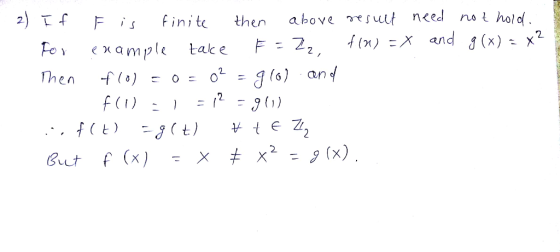 2) If F is finite then above result need not hold.
For example take F = Z₂, f(x) = X and g(x) = x²
Then f(0) = 0 = 0² = g(0) and
f(1) = 1 = 1² = g(1)
∴ f(t) = g(t) ∀ t ∈ Z₂
But f(x) = X ≠ x² = g(x).